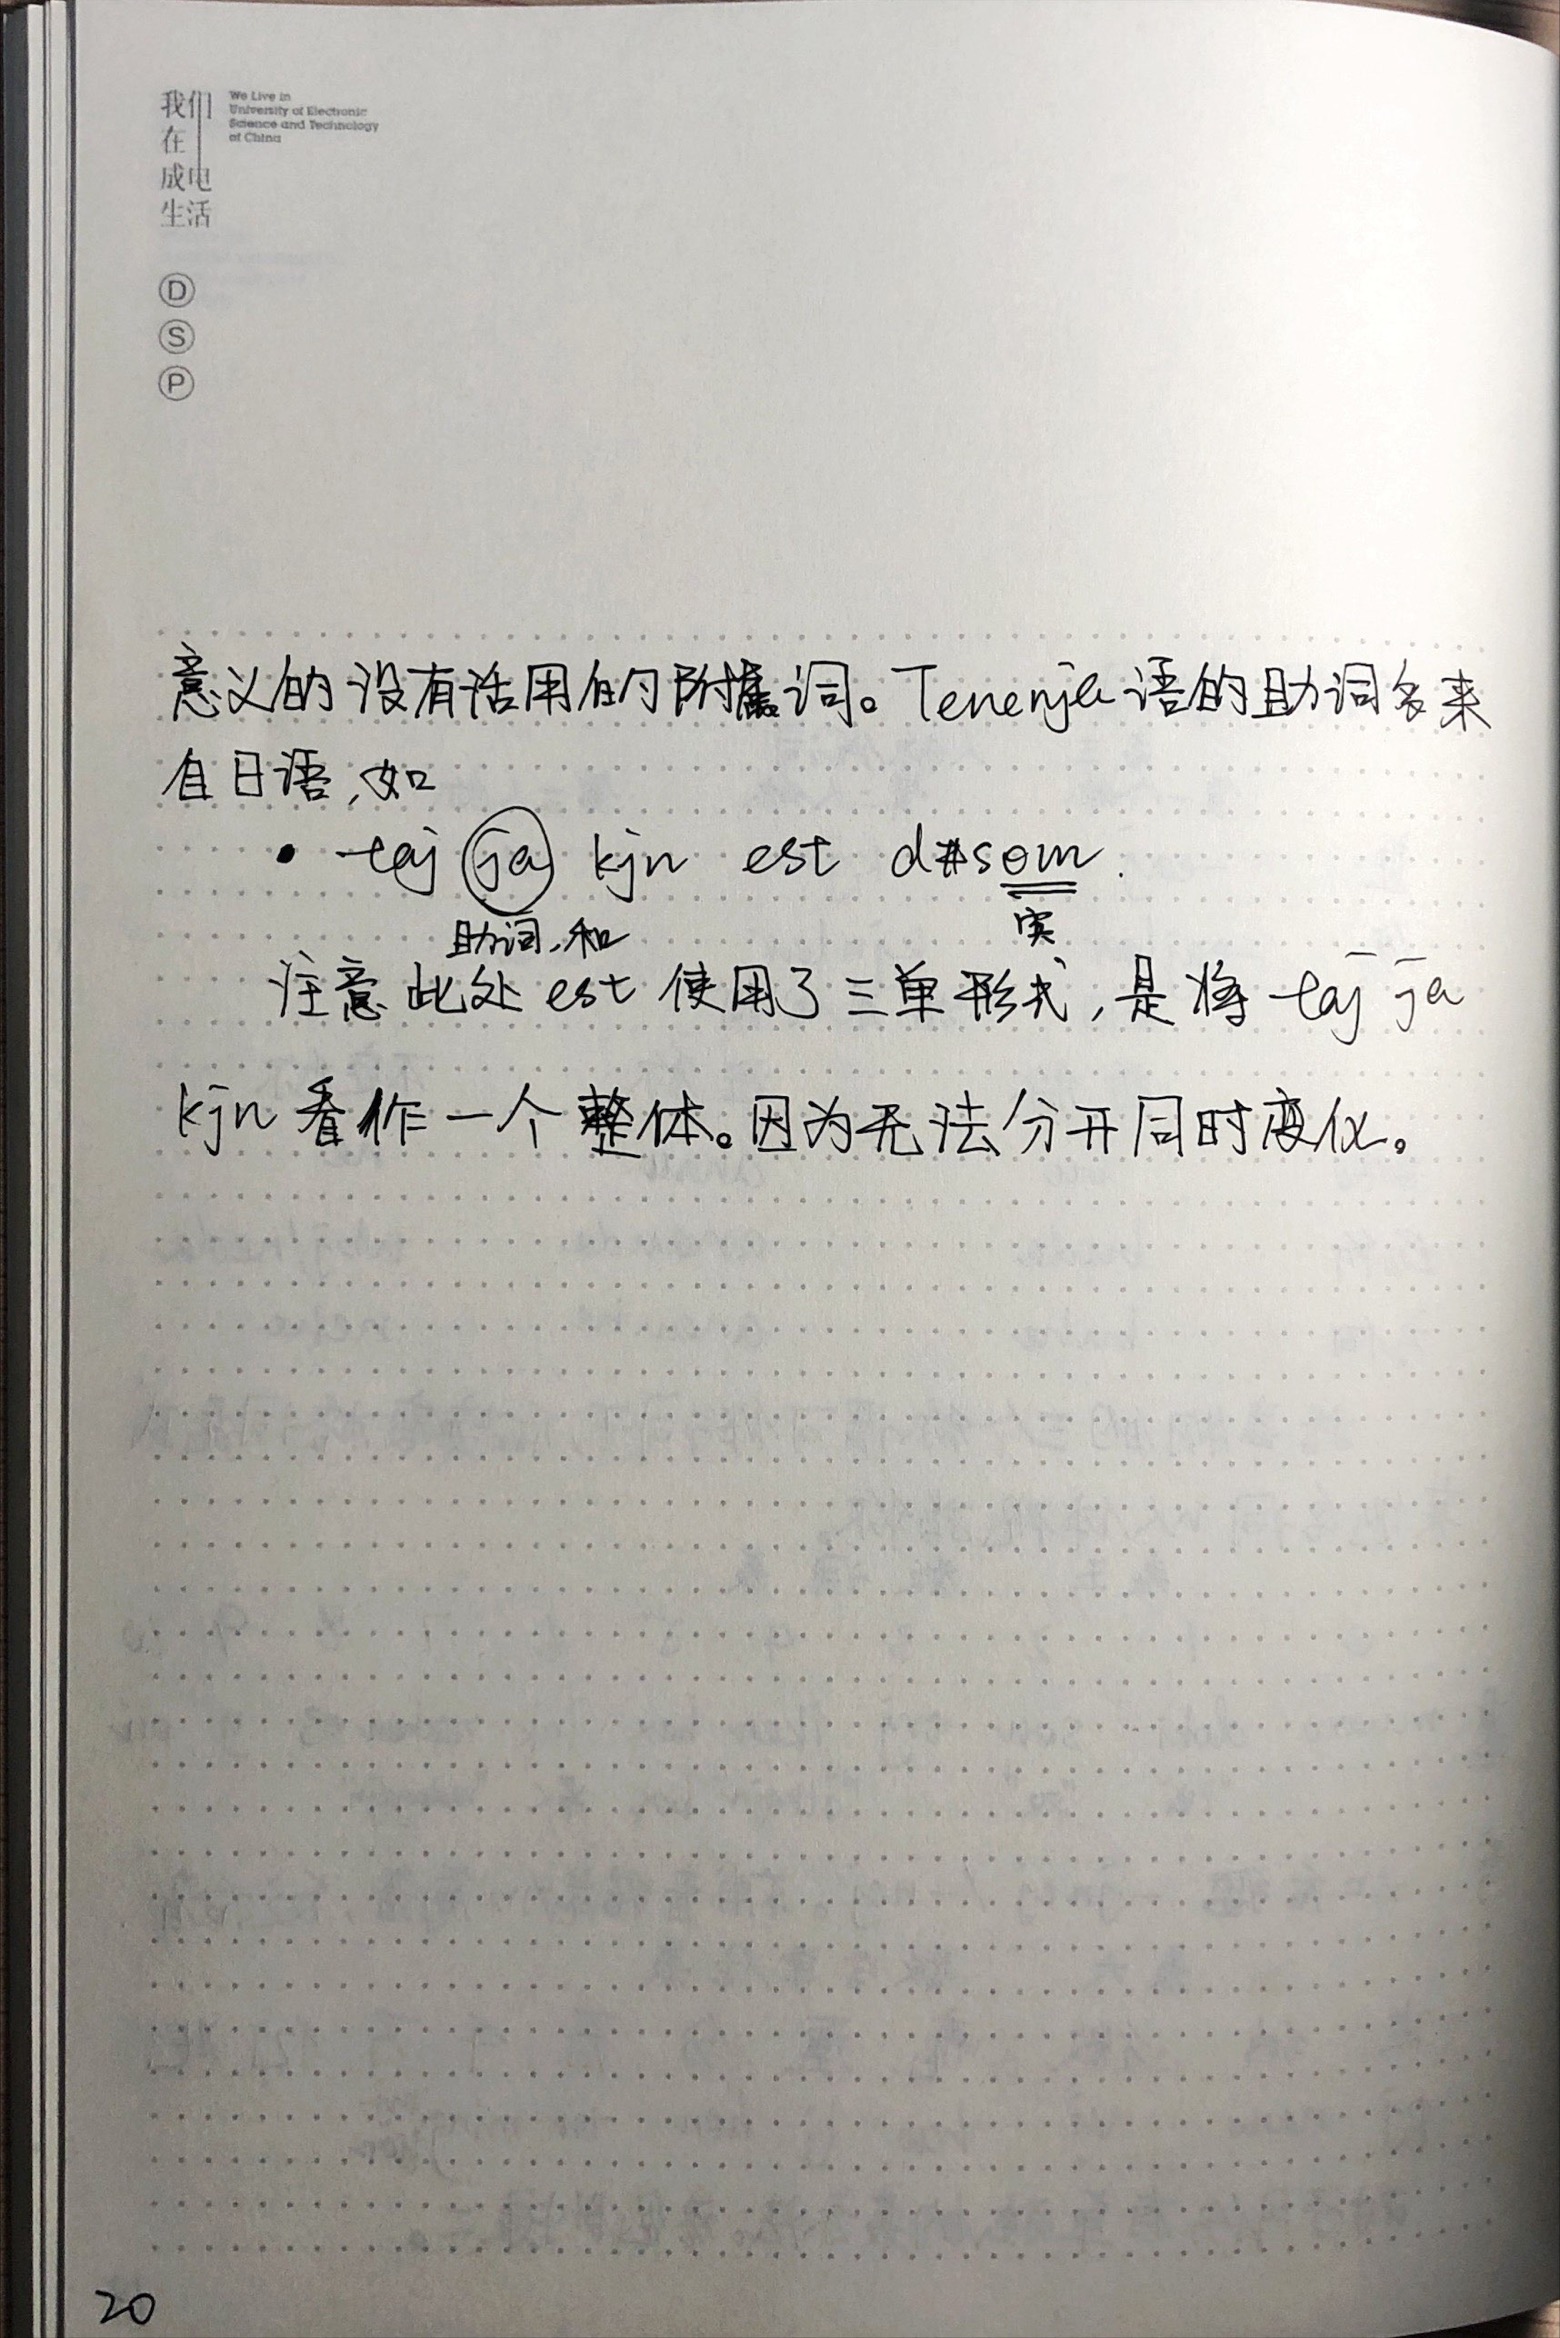 我们
在
成电
生活
We Live in
University of Electronic
Science and Technology
of China
D
S
P
意义的没有活用的附属词。Tenenja语的助词多来
自日语,如
• taj ja kjn est som.
助词,和 实
注意此处est使用了三单形式,是将taj ja
kjn看作一个整体。因为无法分开同时变化。
20